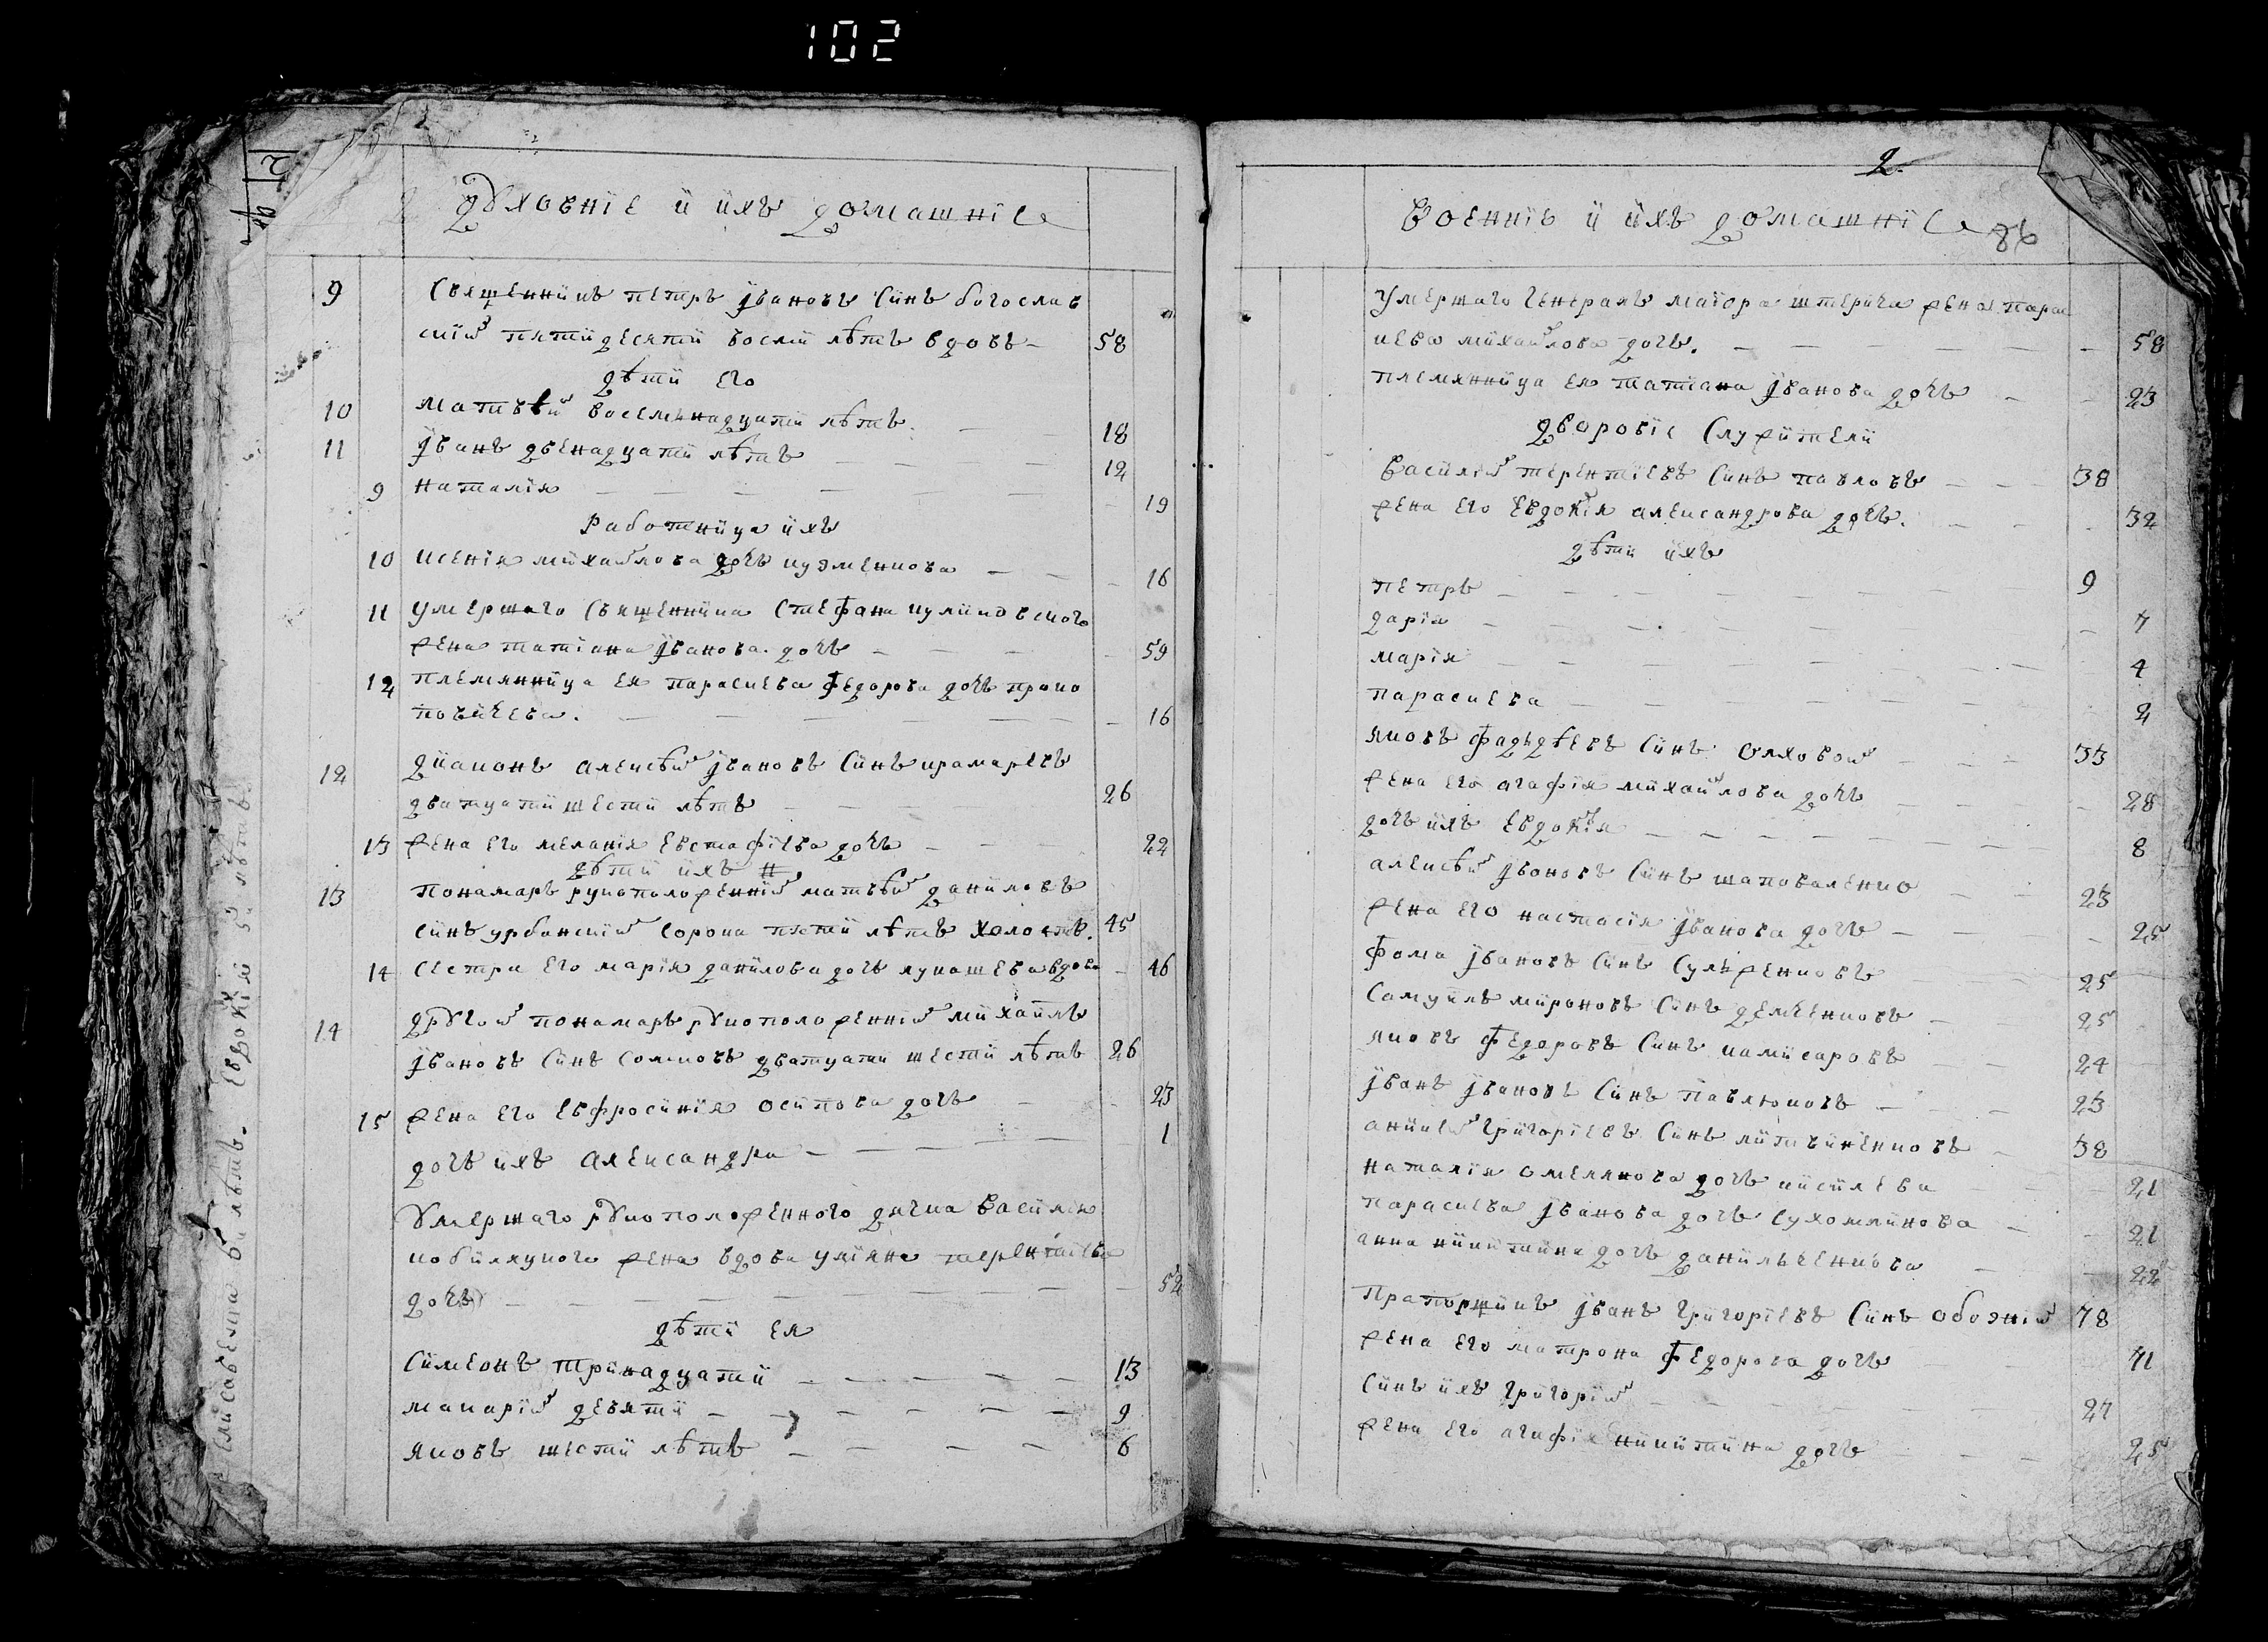 102
духовніе и ихъ домашніе
9 Священникъ петръ Јвановъ Синъ богослав
скій пятидесяти восми лѣтъ вдовъ - 58
дѣти его
10 матвѣй восемьнадцати лѣтъ. 18
11 Јванъ двенадцати лѣтъ 12
9 наталія 19
Работница ихъ
10 ксенія михайлова дочь кузменкова 16
11 умершаго Священника Стефана куликовского
жена татіана Јванова дочь 59
12 племянница ея параскева федорова дочь проко
повичева. 16
12 діаконъ алексѣй Јвановъ Синъ крамаревъ
дватцати шести лѣтъ 26
13 жена его меланія Евстафіева дочь 22
дѣти ихъ
13 пономаръ рукоположенній матвѣй даниловъ
синъ урбанскій сорока пяти лѣтъ холостъ. 45
14 сестра его марія данилова дочь лукашева вдова 46
14 другой пономаръ рукоположенній михаилъ
Јвановъ Синъ Сомковъ дватцати шести лѣтъ 26
15 жена его Евфросинія осипова дочь 23
дочь ихъ александра 1
Умершаго рукоположенного дячка василія
кобиляцкого жена вдова уліяна терентіева
дочь 52
дѣти ея
Симеонъ тринадцати 13
макарій девяти 9
яковъ шести лѣтъ 6
2
Военніе и ихъ домашніе 86
Умершаго генералъ маіора штерича жена пара
скева михайлова дочь. 58
племянница ея татіана Јванова дочь 23
дворовіе Служители
василій терентіевъ Синъ павловъ 38
жена его Евдокія александрова дочь. 32
дѣти ихъ
петръ 9
дарія 7
марія 4
параскева 2
яковъ фадѣдѣевъ Синъ олховой 33
жена его агафія михайлова дочь 28
дочь ихъ Евдокія 8
алексѣй Јвановъ Синъ шаповаленко 23
жена его настасія Јванова дочь 25
фома Јвановъ Синъ Сулженковъ 25
Самуилъ мироновъ Синъ демченковъ 25
яковъ федоровъ Синъ камисаровъ 24
Јванъ Јвановъ Синъ павлюковъ 23
аникей григоріевъ Синъ литвиненковъ 38
наталія омелянова дочь кисилева 21
параскева Јванова дочь Сухомлинова 21
анна никитина дочь данильченкова 22
прапорщикъ Јванъ григоріевъ Синъ обозній 78
жена его матрона федорова дочь 71
Синъ ихъ григорій 27
жена его агафія никитина дочь 25